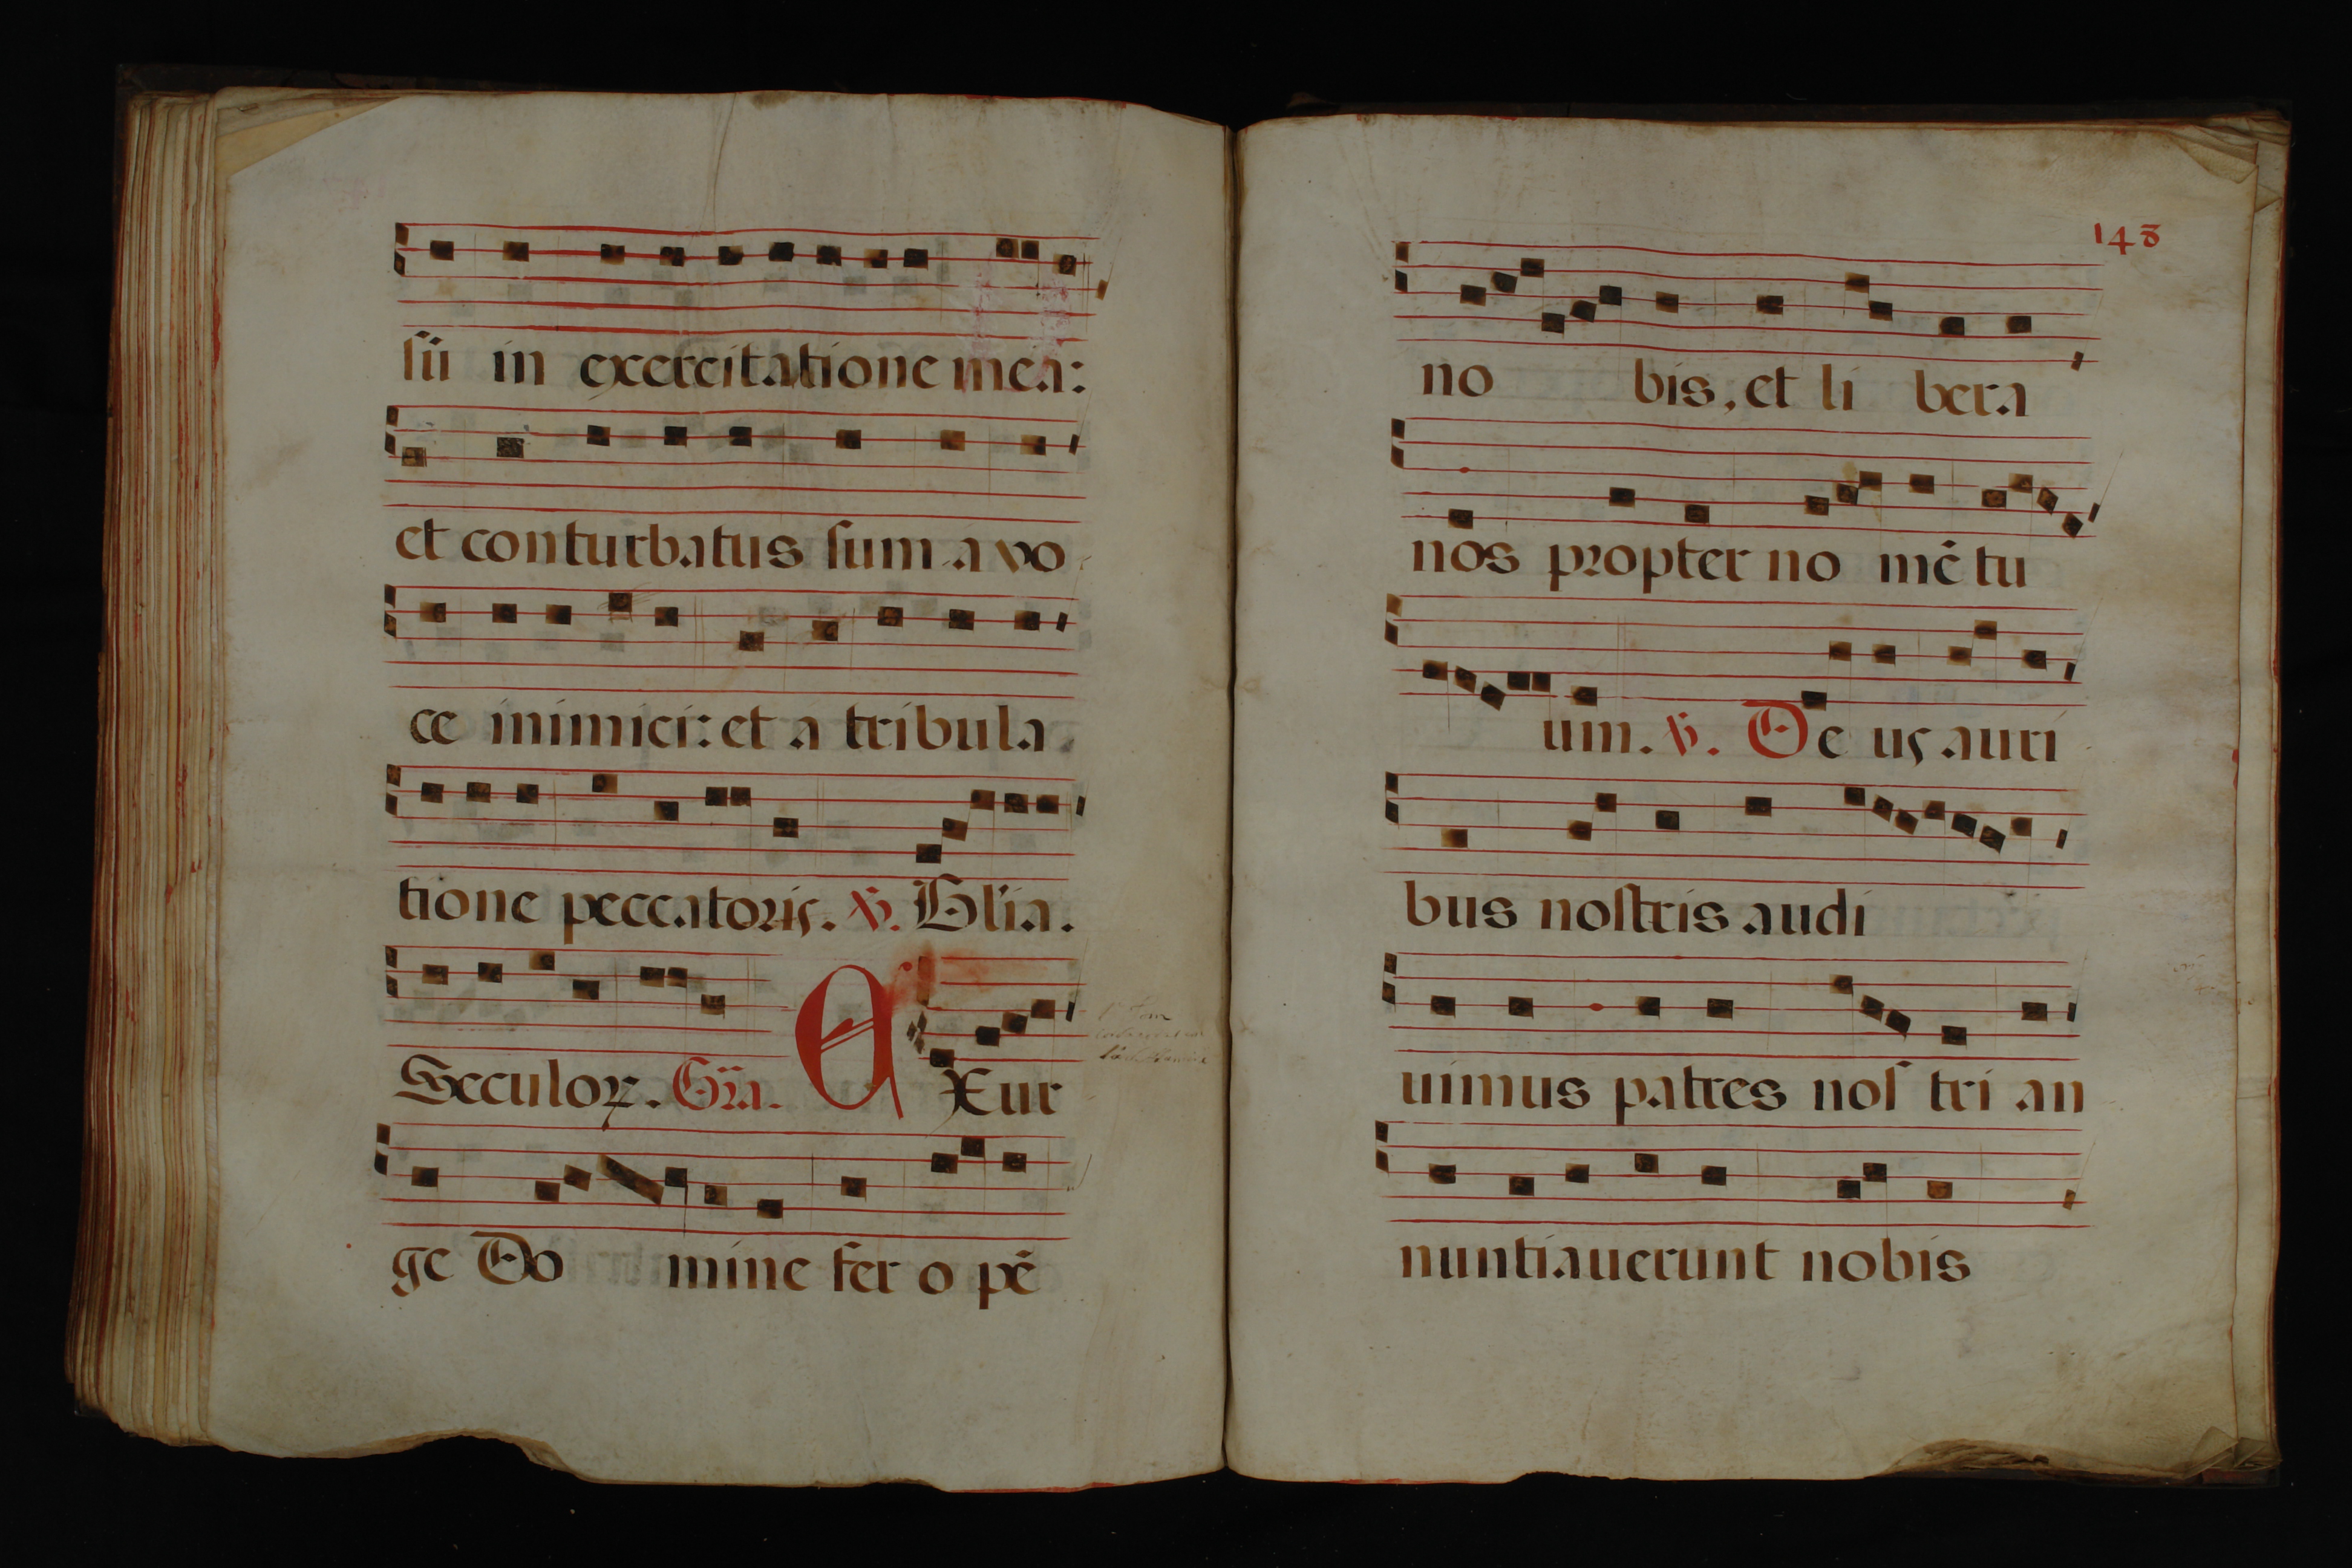 sū in exercitatione mea:
et conturbatus sum a vo
ce inimici: et a tribula
tione peccatoris. ℣. Gl'ia.
Seculoꝝ. Gr̃a. EXur
ge Do mine fer o pē
148
no bis, et li bera
nos propter no mē tu
um. ℣. De us auri
bus nostris audi
uimus patres nos tri an
nuntiauerunt nobis